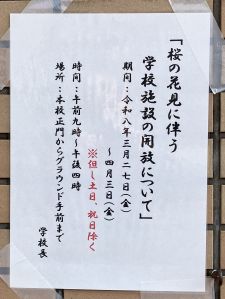 「桜の花見に伴う
学校施設の開放について」
期間：令和八年三月二七日(金)
～四月三日(金)
※但し土日、祝日除く
時間：午前九時～午後四時
場所：本校正門からグラウンド手前まで
学校長